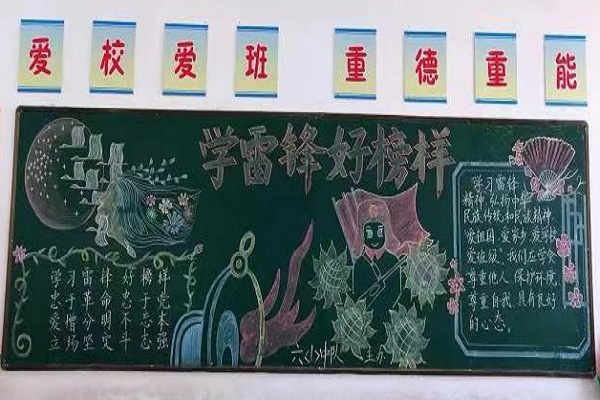 爱校爱班 重德重能
学雷锋好榜样
学习雷锋好榜样
忠于革命忠于党
爱憎分明不忘本
立场坚定斗志强
学习雷锋
精神,弘扬中华
民族传统和民族精神,
爱祖国、爱家乡、爱学校
爱班级。我们应学会
尊重他人,保护环境,
尊重自我,具有良好
的心态。
中队 主办